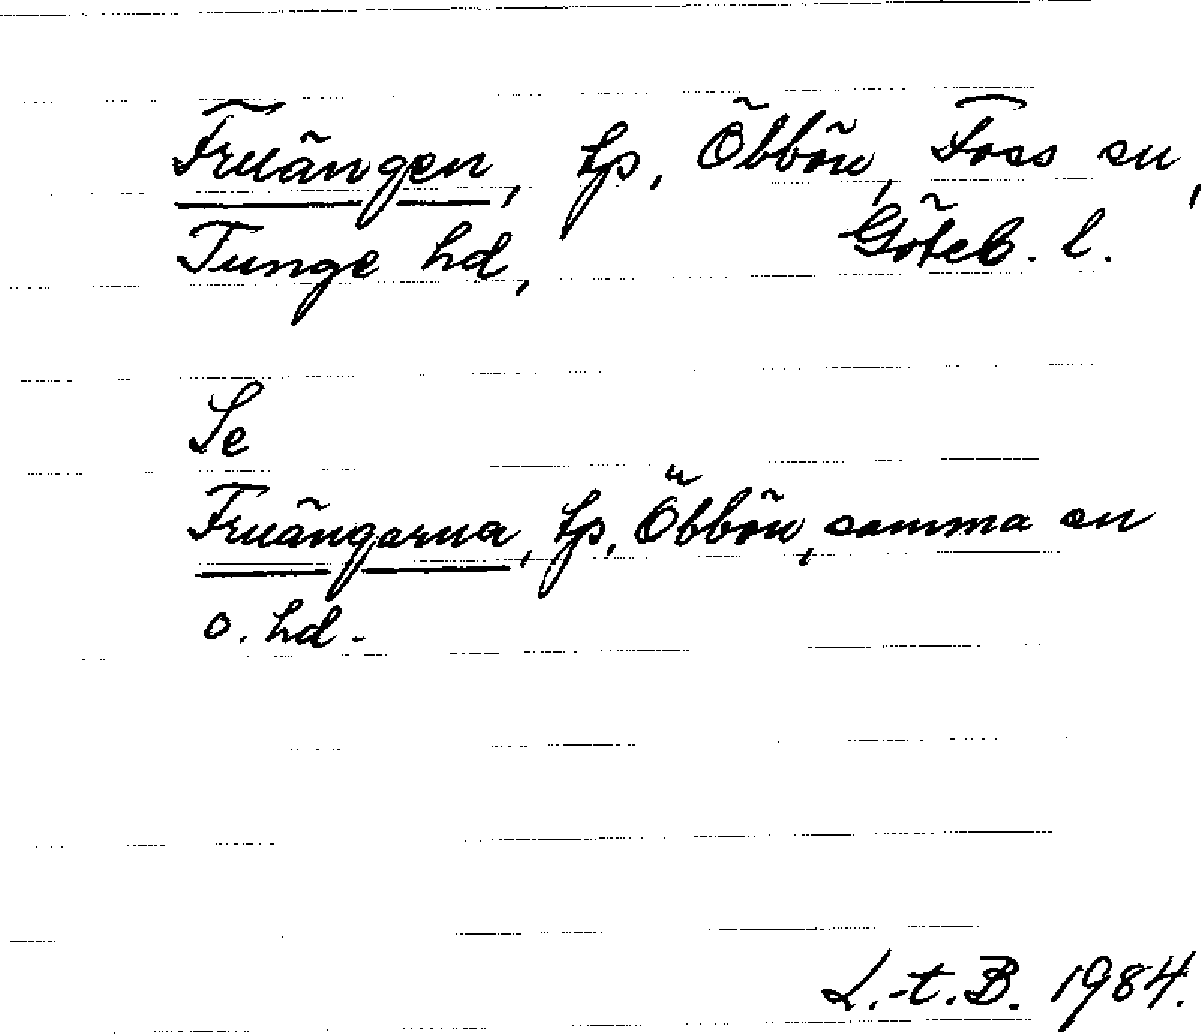 Fruängen, tp, Öbbön, Foss sn,
Tunge hd, Göteb. l.
Se
Fruängarna, tp, Öbbön, samma sn
o. hd.
L.-t. B. 1984.